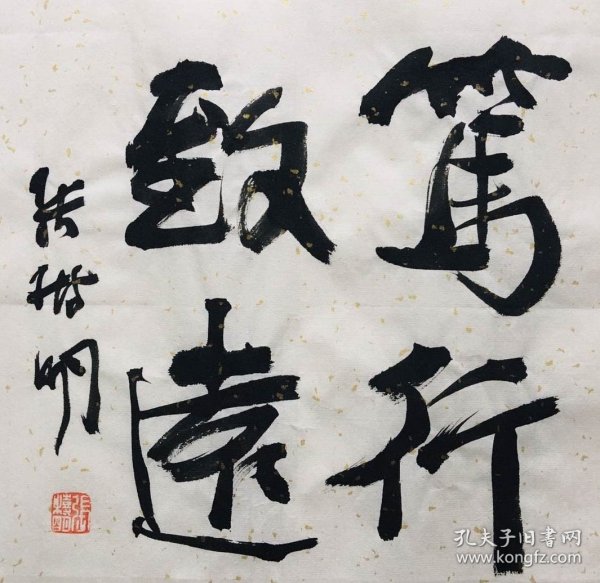 篤行
致遠
张楷明
孔夫子旧书网
www.kongfz.com